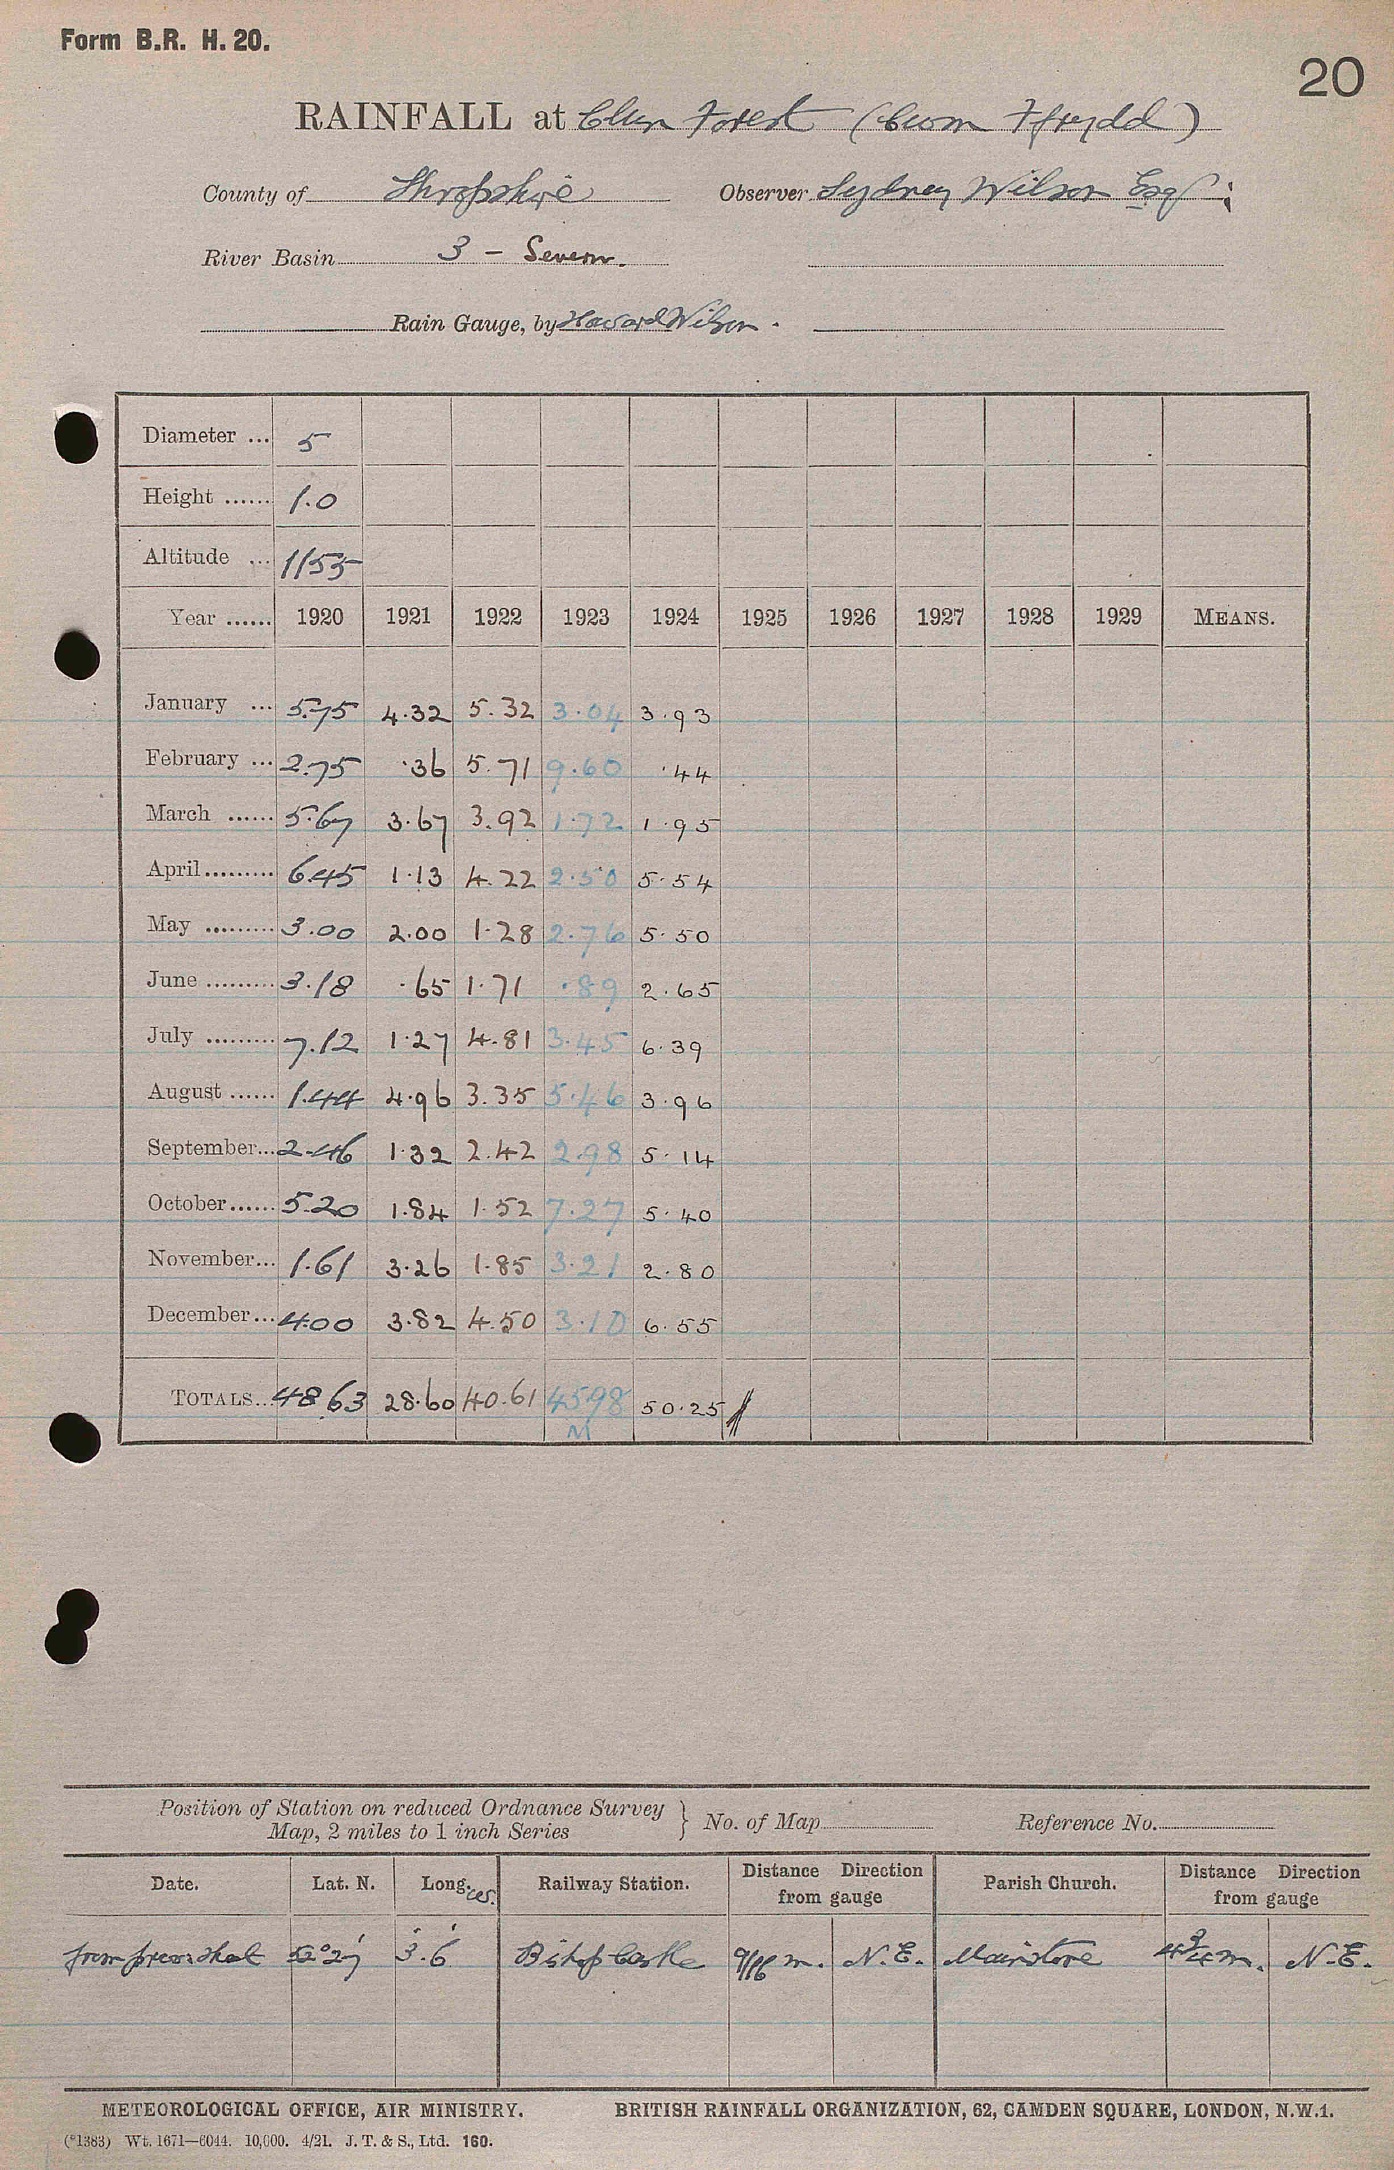 Form B.R. H. 20.
20
RAINFALL at Clun Forest (Cwm Ffrydd)
County of Shropshire Observer Sydney Wilson Esq
River Basin 3 – Severn.
Rain Gauge, by Havard Wilson.
Diameter ... 5
Height ...... 1.0
Altitude ... 1155
Year ...... 1920 1921 1922 1923 1924 1925 1926 1927 1928 1929 MEANS.
January ... 5.75 4.32 5.32 3.04 3.93
February ... 2.75 .36 5.71 9.60 .44
March ...... 5.67 3.67 3.92 1.72 1.95
April......... 6.45 1.13 4.22 2.50 5.54
May ......... 3.00 2.00 1.28 2.76 5.50
June ......... 3.18 .65 1.71 .89 2.65
July ......... 7.12 1.27 4.81 3.45 6.39
August ...... 1.44 4.96 3.35 5.46 3.96
September... 2.46 1.32 2.42 2.98 5.14
October...... 5.20 1.84 1.52 7.27 5.40
November... 1.61 3.26 1.85 3.21 2.80
December... 4.00 3.82 4.50 3.10 6.55
TOTALS... 48.63 28.60 40.61 45.98 50.25
M
Position of Station on reduced Ordnance Survey
Map, 2 miles to 1 inch Series } No. of Map Reference No.
Date. Lat. N. Long. Railway Station. Distance Direction from gauge Parish Church. Distance Direction from gauge
from prev: sheet 52° 27' 3° 6' Bishops Castle 9/16 m. N.E. Mainstone 4 3/4 m. N.E.
METEOROLOGICAL OFFICE, AIR MINISTRY. BRITISH RAINFALL ORGANIZATION, 62, CAMDEN SQUARE, LONDON, N.W.1.
(*1383) Wt. 1671—6044. 10,000. 4/21. J. T. & S., Ltd. 160.